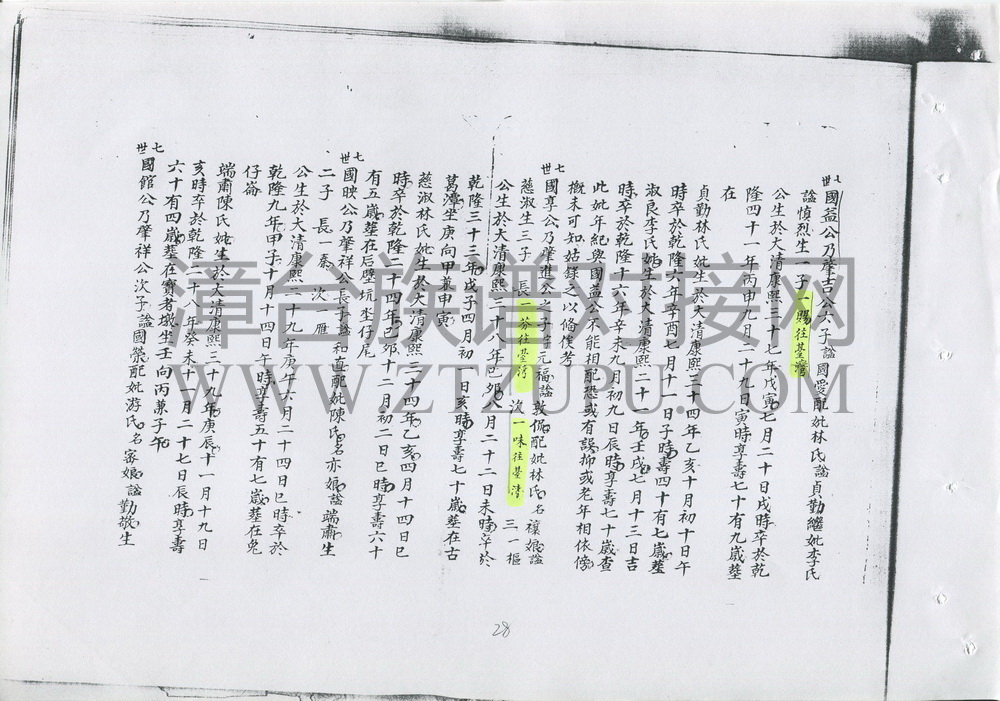 七世 國益公乃肇吉公六子諡國愛配妣林氏諡貞勤繼妣李氏
諡慎烈生一子一賜往臺灣
公生於大清康熙三十七年戊寅七月二十日戌時卒於乾
隆四十一年丙申九月二十九日寅時享壽七十有九歲塟
在
貞勤林氏妣生於大清康熙三十四年乙亥十月初十日午
時卒於乾隆六年辛酉七月十一日子時壽四十有七歲塟
淑良李氏妣生於大清康熙二十一年壬戌七月十三日吉
時卒於乾隆十六年辛未九月初九日辰時享壽七十歲查
此妣年紀與國益公不能相配恐或有誤抑或老年相依傍
概未可知姑錄之以俻後考
七世 國享公乃肇進公之子諱元福諡敦侃配妣林氏名禳娘諡
慈淑生三子 長一芬往臺灣 次一味往臺灣 三一樞
公生於大清康熙三十八年己卯八月二十二日未時卒於
乾隆三十三年戊子四月初一日亥時享壽七十歲塟在古
萬潭坐庚向甲兼申寅
慈淑林氏妣生於大清康熙三十四年乙亥四月十四日巳
時卒於乾隆二十四年己卯十二月初二日巳時享壽六十
有五歲塟在后壁坑李仔尾
七世 國映公乃肇祥公長子諡和直配妣陳氏名亦娘諡端肅生
二子 長一泰 次一雁
公生於大清康熙二十九年庚午六月二十四日巳時卒於
乾隆九年甲子十月十四日午時享壽五十有七歲塟在兔
仔崙
端肅陳氏妣生於大清康熙三十九年庚辰十一月十九日
亥時卒於乾隆二十八年癸未十一月二十七日辰時享壽
六十有四歲塟在寶者墩坐壬向丙兼子午
七世 國館公乃肇祥公次子諡國榮配妣游氏名密娘諡勤敬生
28
漳台族谱对接网
WWW.ZTZUPU.COM